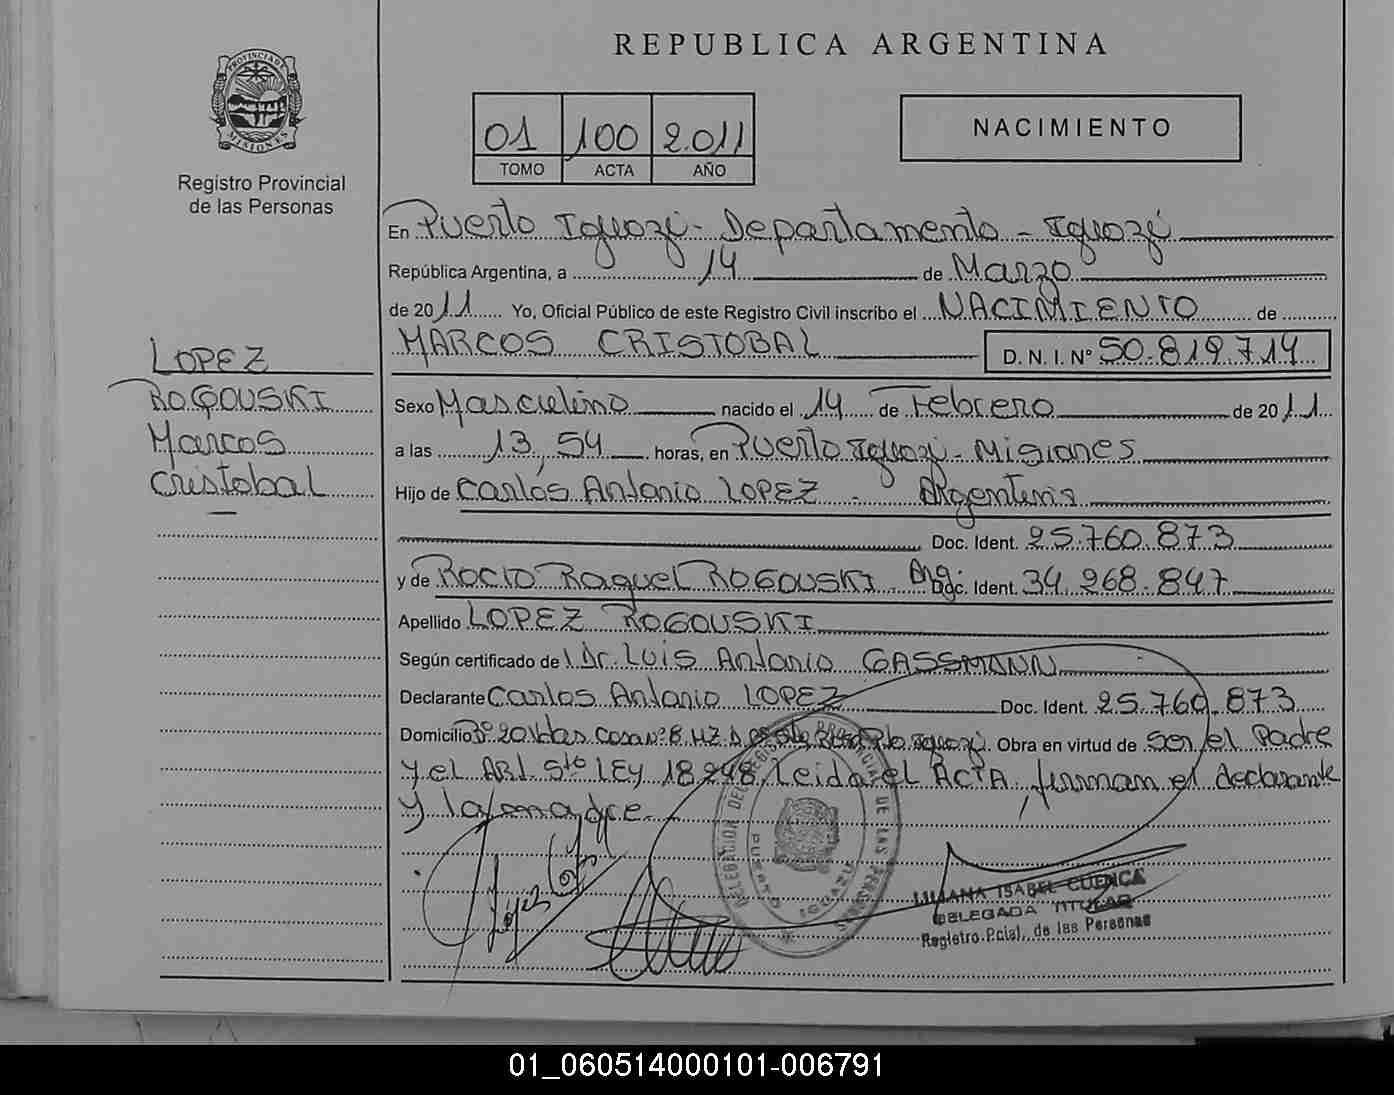 REPUBLICA ARGENTINA
PROVINCIA DE MISIONES
Registro Provincial
de las Personas
01 100 2.011
TOMO ACTA AÑO
NACIMIENTO
En Puerto Iguazú - Departamento - Iguazú
República Argentina, a 14 de Marzo
de 2011 Yo, Oficial Público de este Registro Civil inscribo el NACIMIENTO de
MARCOS CRISTOBAL D.N.I. Nº 50.819.714
LOPEZ
ROGOUSKI
Marcos
Cristobal
Sexo Masculino nacido el 14 de Febrero de 2011
a las 13,54 horas, en Puerto Iguazú - Misiones
Hijo de Carlos Antonio LOPEZ - Argentino
Doc. Ident. 25.760.873
y de Rocio Raquel ROGOUSKI. Arg. Doc. Ident. 34.268.847
Apellido LOPEZ ROGOUSKI
Según certificado de l Dr. Luis Antonio GASSMANN
Declarante Carlos Antonio LOPEZ Doc. Ident. 25.760.873
Domicilio Bº 20 Vdas Casa nº 8 MZ D Pto Iguazú. Obra en virtud de Ser el Padre
y el ARt. 5to LEY 18248. Leida el ACTA, firman el declarante
y la madre.
Lopez
DELEGACION DEL REGISTRO PROVINCIAL DE LAS PERSONAS
PUERTO IGUAZU
LILIANA ISABEL CUENCA
DELEGADA TITULAR
Registro Pcial. de las Personas
01_060514000101-006791